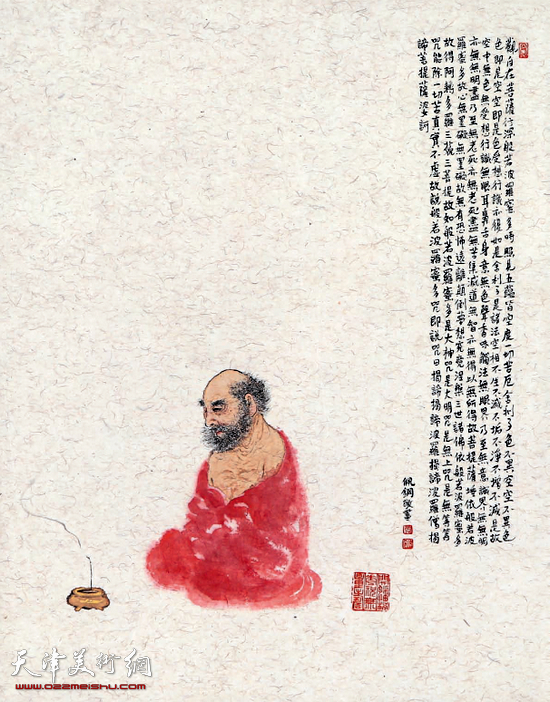 觀自在菩薩行深般若波羅蜜多時照見五蘊皆空度一切苦厄舍利子色不異空空不異色
色即是空空即是色受想行識亦復如是舍利子是諸法空相不生不滅不垢不淨不增不減是故
空中無色無受想行識無眼耳鼻舌身意無色聲香味觸法無眼界乃至無意識界無無明
亦無無明盡乃至無老死亦無老死盡無苦集滅道無智亦無得以無所得故菩提薩埵依般若波
羅蜜多故心無罣礙無罣礙故無有恐怖遠離顛倒夢想究竟涅槃三世諸佛依般若波羅蜜多
故得阿耨多羅三藐三菩提故知般若波羅蜜多是大神咒是大明咒是無上咒是無等等
咒能除一切苦真實不虛故說般若波羅蜜多咒即說咒曰揭諦揭諦波羅揭諦波羅僧揭
諦菩提薩婆訶
佩鋼敬寫
天津美術網
www.022meishu.com